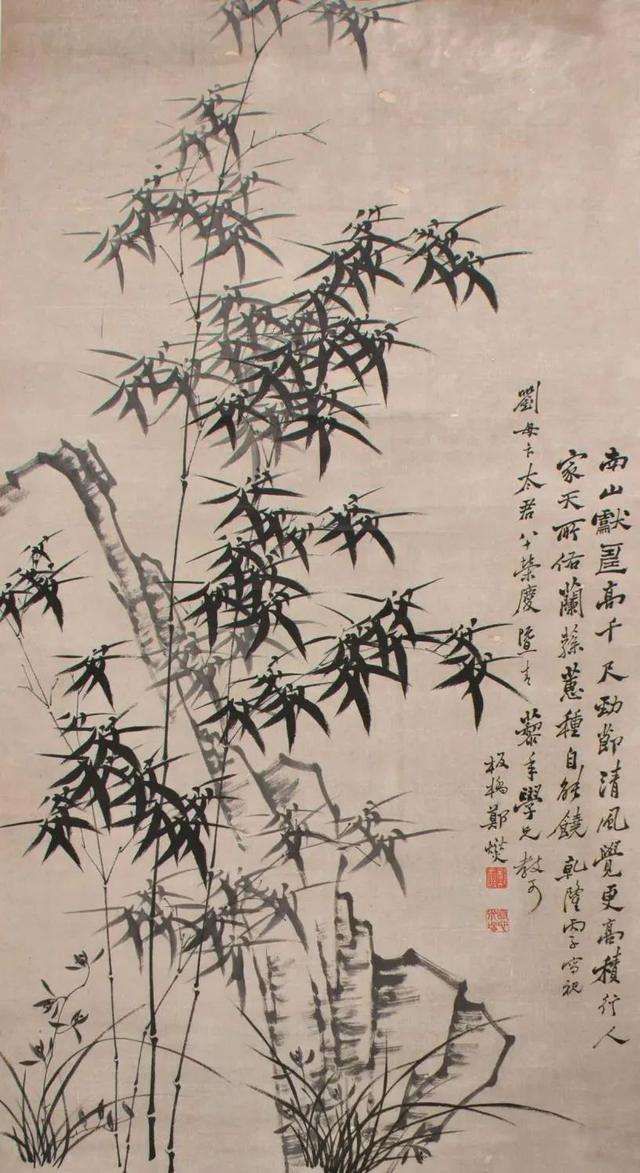 南山獻壽高千尺勁節清風覺更高積行人
家天所佑蘭蓀蕙種自能饒乾隆丙子寫祝
劉母卞太君八十榮慶暨青藜年學兄教可
板橋鄭燮